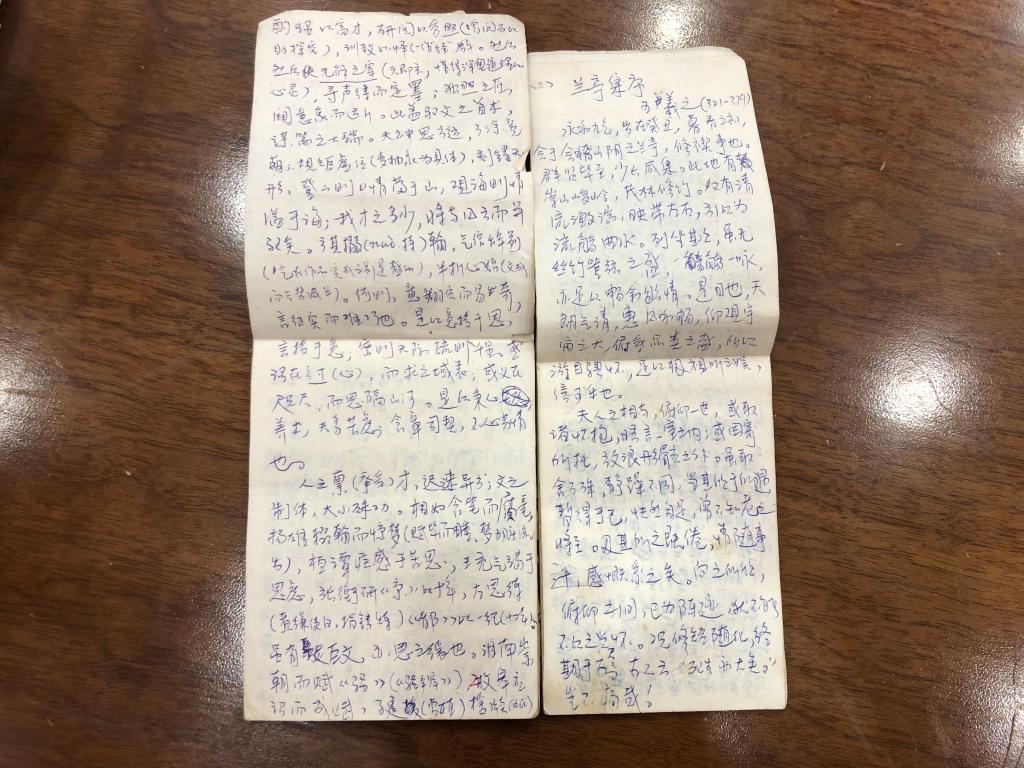 酌理以富才，研阅以穷照
训致以怿
然后使元解之宰
寻声律而定墨；独照之匠，
闚意象而运斤。此盖驭文之首术，
谋篇之大端。夫神思方运，万涂竞
萌，规矩虚位，刻镂无
形。登山则情满于山，观海则情
溢于海；我才之多少，将与风云而并
驱矣。方其搦(nuò 持)翰，气倍辞前
半折心始
何则，意翻空而易奇，
言征实而难巧也。是以意授于思，
言授于意，密则无际，疏则千里。或
理在方寸(心)，而求之域表，或义在
咫尺，而思隔山河。是以秉心
养术，无务苦虑；含章司契，不必劳情
也。
人之禀才，迟速异分；文之
制体，大小殊功。相如含笔而腐毫，
扬雄辍翰而惊梦
桓谭疾感于苦思，王充气竭于
思虑，张衡研《京》以十年，左思练
《都》以一纪
虽有巨文，亦思之缓也。淮南崇
朝而赋《骚》，枚皋应
诏而成赋，子建
(二) 兰亭集序
王羲之(321-379)
永和九年，岁在癸丑，暮春之初，
会于会稽山阴之兰亭，修禊事也。
群贤毕至，少长咸集。此地有
崇山峻岭，茂林修竹。又有清
流激湍，映带左右，引以为
流觞曲水。列坐其次，虽无
丝竹管弦之盛，一觞一咏，
亦足以畅叙幽情。是日也，天
朗气清，惠风和畅，仰观宇
宙之大，俯察品类之盛，所以
游目骋怀，足以极视听之娱，
信可乐也。
夫人之相与，俯仰一世，或取
诸怀抱，晤言一室之内；或因寄
所托，放浪形骸之外。虽取
舍万殊，静躁不同，当其欣于所遇，
暂得于己，快然自足，曾不知老之
将至。及其所之既倦，情随事
迁，感慨系之矣。向之所欣，
俯仰之间，已为陈迹，犹不能
不以之兴怀。况修短随化，终
期于尽，古人云："死生亦大矣。"
岂不痛哉！